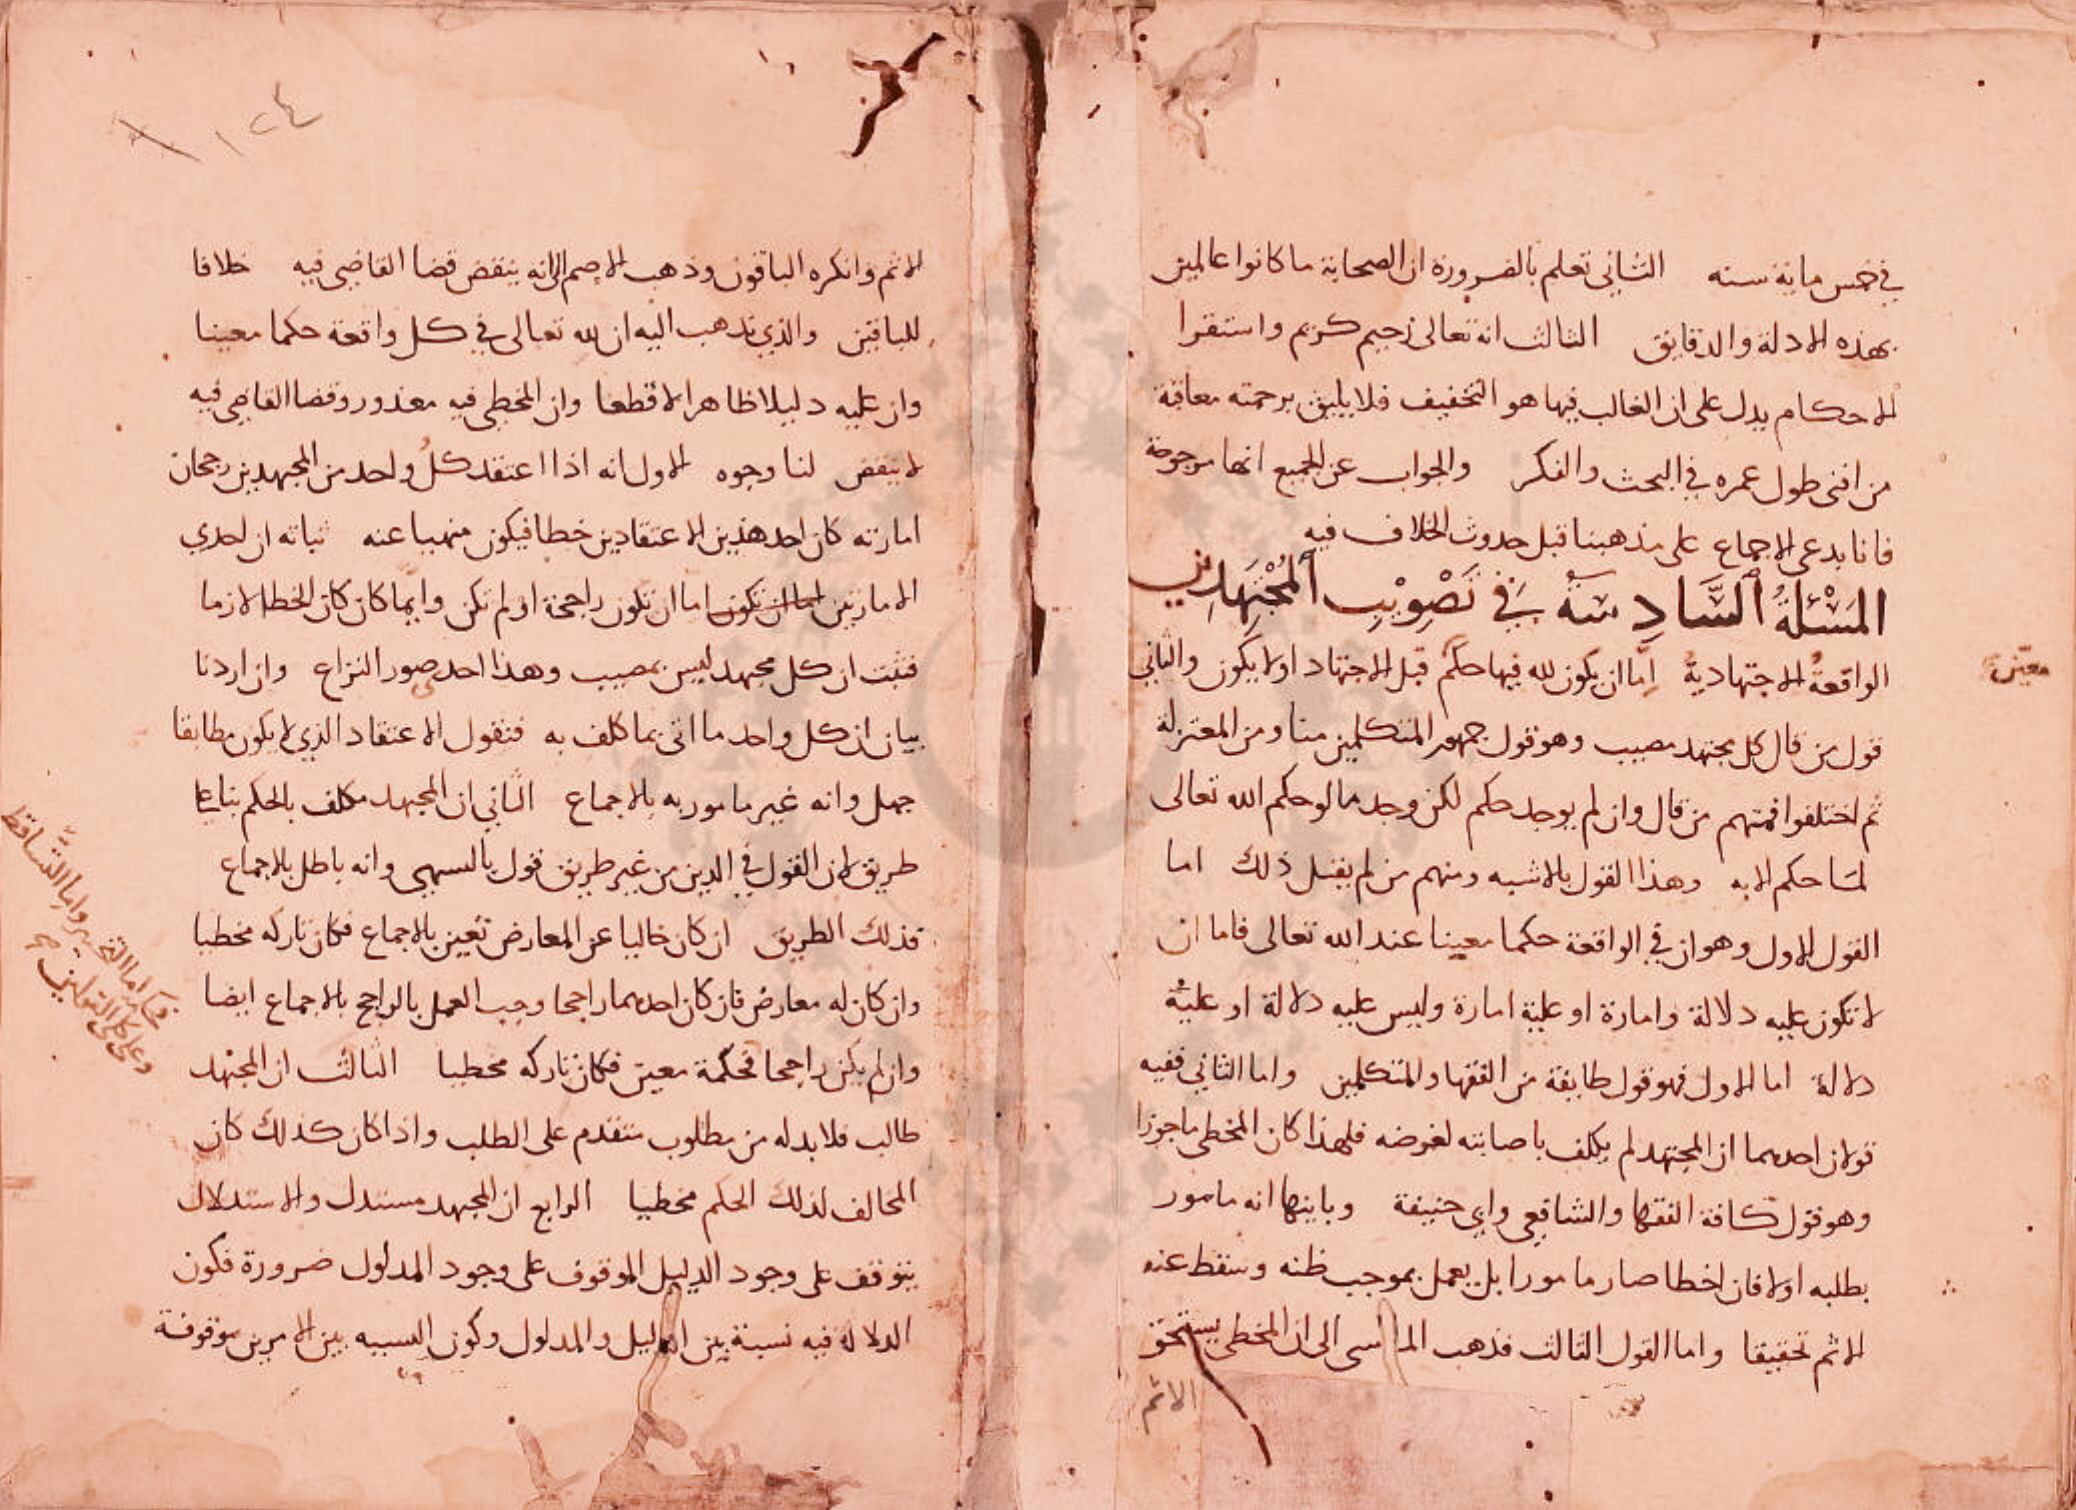 في خمس ماية سنه الثاني تعلم بالضرورة ان الصحابة ما كانوا عالمين
بهذه الادلة والدقايق الثالث انه تعالى رحيم كريم واستقرا
الاحكام يدل على ان الغالب فيها هو التخفيف فلا يليق برحمته معاقبة
من افنى طول عمره في البحث والفكر والجواب عن الجميع انها مرجوحة
فانا ندعي الاجماع على مذهبنا قبل حدوث الخلاف فيه
المَسْئلةُ السَّادِسَةُ فِي تَصْوِيْبِ المُجْتَهِدِيْن
الواقعةُ الاجتهاديةُ اِمّا ان يكون لله فيها حكمٌ قبل الاجتهاد اولا يكون والثاني
معيّن
قول من قال كل مجتهد مصيب وهو قول جمهور المتكلمين منا ومن المعتزلة
ثم اختلفوا فمنهم من قال وان لم يوجد حكم لكن وجد ما لو حكم الله تعالى
لما حكم الا به وهذا القول بالاشبه ومنهم من لم يقل ذلك اما
القول الاول وهو ان في الواقعة حكما معينا عند الله تعالى فاما ان
لا تكون عليه دلالة وامارة او عليه امارة وليس عليه دلالة او عليه
دلالة اما الاول فهو قول طايفة من الفقها والمتكلمين واما الثاني ففيه
قولان احدهما ان المجتهد لم يكلف باصابته لغموضه فلهذا كان المخطي ماجورا
وهو قول كافة الفقها والشافعي وابي حنيفة وثانيها انه مامور
بطلبه اولا فان اخطا صار مامورا بل يعمل بموجب ظنه وسقط عنه
الاثم تحقيقا واما القول الثالث فذهب المريسي الى ان المخطي يستحق
الاثم
١٢٤
الاثم وانكره الباقون وذهب الاصم الى انه ينقض قضا القاضي فيه خلافا
للباقين والذي نذهب اليه ان لله تعالى في كل واقعة حكما معينا
وان عليه دليلا ظاهرا لا قطعا وان المخطي فيه معذور وقضا القاضي فيه
لا ينقض لنا وجوه الاول انه اذا اعتقد كلُ واحد من المجتهدين رجحان
امارته كان احد هذين الاعتقادين خطا فيكون منهيا عنه ثباته ان احدي
الامارتين اما ان تكون اما ان تكون راجحة او لم تكن وايما كان كان الخطا لازما
فثبت ان كل مجتهد ليس بمصيب وهذا احد صور النزاع وان اردنا
بيان ان كل واحد ما اتى بما كلف به فنقول الاعتقاد الذي لا يكون مطابقا
جهل وانه غير مامور به بالاجماع الثاني ان المجتهد مكلف بالحكم بنا على
طريق لان القول في الدين من غير طريق قول بالتشهي وانه باطل بالاجماع
فذلك الطريق ان كان خاليا عن المعارض تعين بالاجماع فكان تاركه مخطيا
وان كان له معارض فان كان احدهما راجحا وجب العمل بالراجح بالاجماع ايضا
وان لم يكن راجحا فحكمه معين فكان تاركه مخطيا الثالث ان المجتهد
طالب فلا بد له من مطلوب متقدم على الطلب واذا كان كذلك كان
المخالف لذلك الحكم مخطيا الرابع ان المجتهد مستدل والاستدلال
يتوقف على وجود الدليل الموقوف على وجود المدلول ضرورة فكون
الدلالة فيه نسبة بين الدليل والمدلول وكون النسبه بين الامرين موقوفة
اما التخيير واما التساقط
وعلى كل التقولين